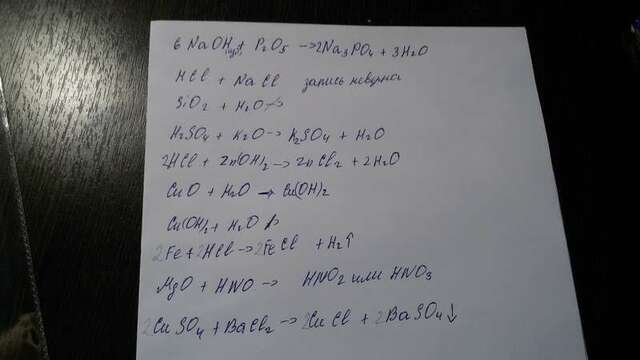 6 NaOH + P2O5 → 2Na3PO4 + 3H2O
HCl + NaCl запись неверна
SiO2 + H2O ↛
H2SO4 + K2O → K2SO4 + H2O
2HCl + Zn(OH)2 → ZnCl2 + 2H2O
CuO + H2O → Cu(OH)2
Cu(OH)2 + H2O ↛
2Fe + 2HCl → 2FeCl + H2↑
MgO + HNO → HNO2 или HNO3
2CuSO4 + BaCl2 → 2CuCl + 2BaSO4↓